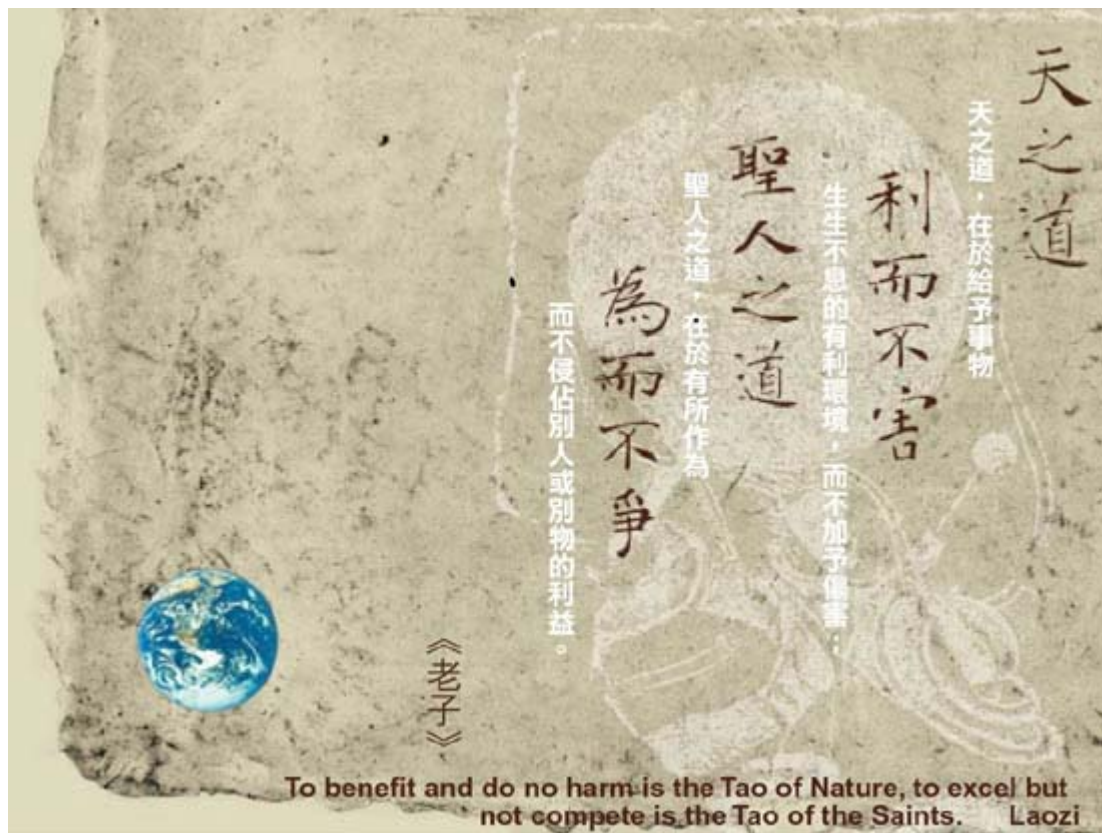 天之道
天之道，在於給予事物
利而不害
生生不息的有利環境，而不加予傷害；
聖人之道
聖人之道，在於有所作為
為而不爭
而不侵佔別人或別物的利益。
《老子》
To benefit and do no harm is the Tao of Nature, to excel but
not compete is the Tao of the Saints. Laozi